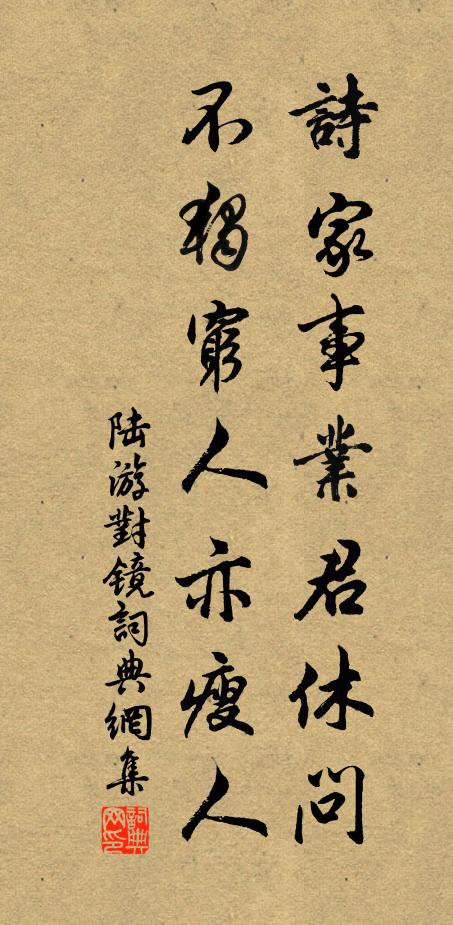 詩家事業君休問
不獨窮人亦瘦人
陆游對镜詞典網集
詞典
网印